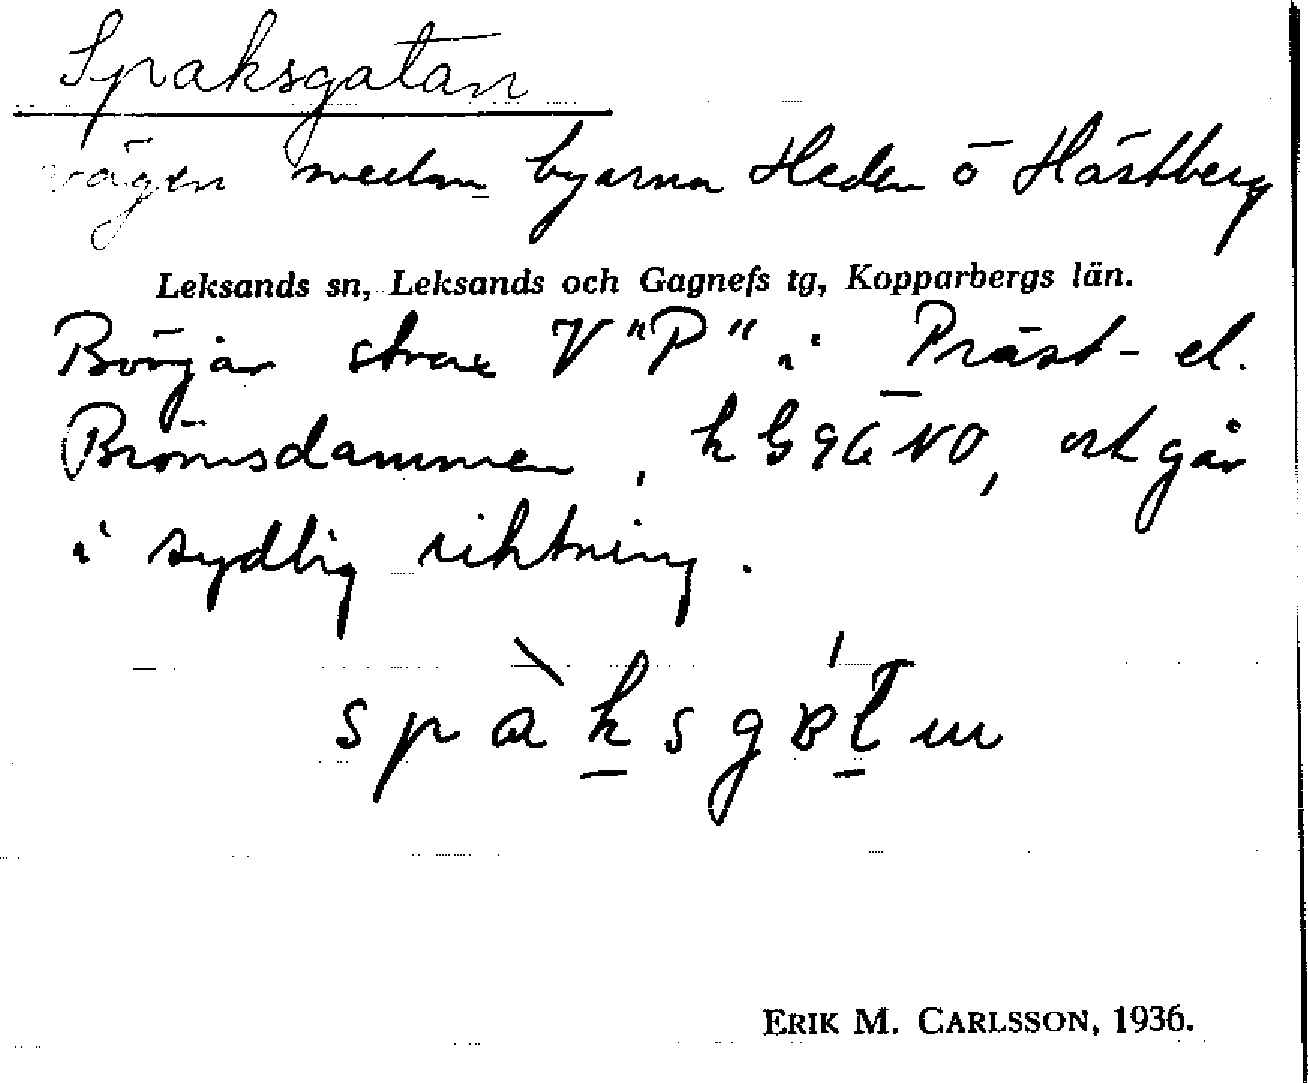 Spaksgatan
vägen mellan byarna Heden o Hästberg
Leksands sn, Leksands och Gagnefs tg, Kopparbergs län.
Börjar strax V "P" i Präst- el.
Brömsdammen, k G96 NO, och går
i sydlig riktning.
ERIK M. CARLSSON, 1936.